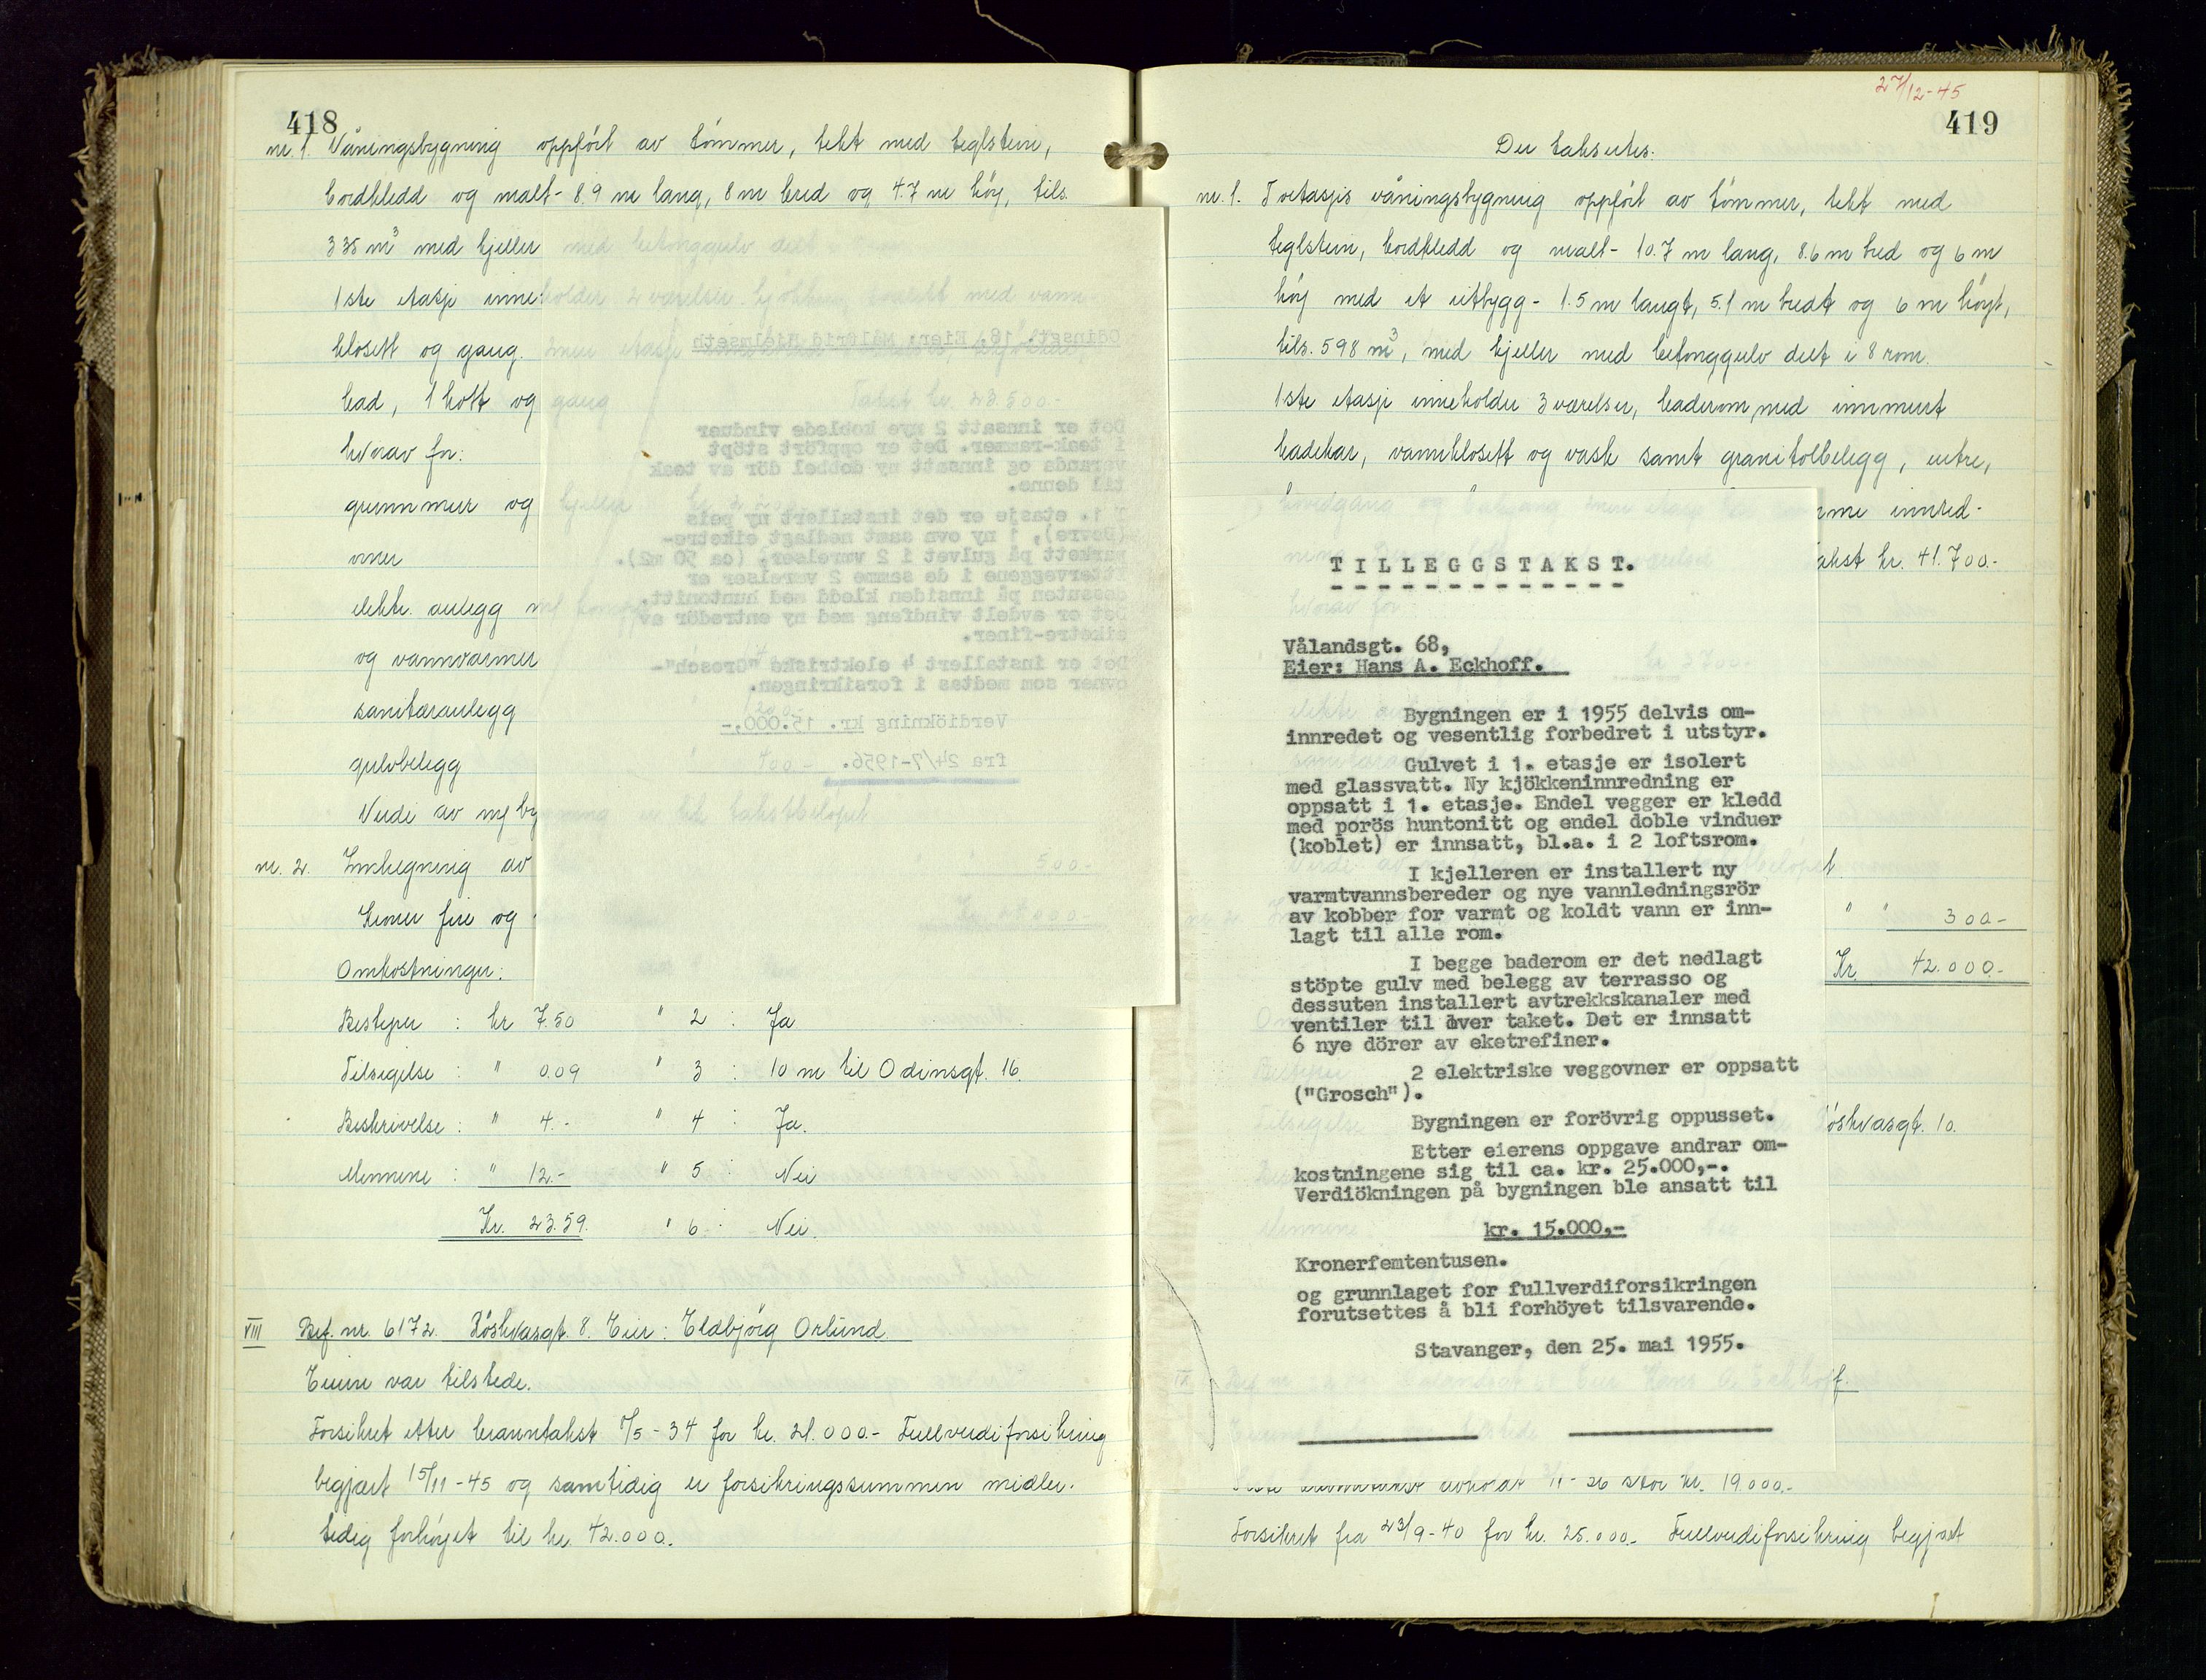 418
nr. 1. Våningsbygning oppfört av tömmer, tekt med teglstein,
bordkledd og malt - 8.9 m lang, 8 m bred og 4.7 m höy, tils.
335 m³ med kjeller med betonggulv delt
1ste etasje inneholder 2 værelser, kjökken, med vann-
klosett og gang. 2nen etasje
bad, 1 kott og gang
hvorav for:
grunnmur og kjeller
ovner
elektr. anlegg
og vannvarmer
sanitæranlegg
gulvbelegg
Verdi av nybygning er lik takstbelöpet
nr. 2. Innhegning av
Kroner fire og
Omkostninger:
Bestyrer : kr 7.50 " 2 : Ja
Tilsigelse : " 0.09 " 3 : 10 m til Odinsgt. 16.
Beskrivelse : " 4.- " 4 : Ja.
Mennene : " 12.- " 5 : Nei
Kr. 23.59. " 6 : Nei.
VIII Bef. nr. 6172. Röskvasgt. 8. Eier: Eldbjörg Orlund.
Eieren var tilstede.
Forsikret etter branntakst 7/5-34 for kr. 21.000.- Fullverdiforsikring
begjært 15/11-45 og samtidig er forsikringssummen midler-
tidig forhöyet til kr. 42.000.
Odinsgt. 18. Eier: Målfrid Hjelmseth
Takst kr. 23.500.-
Det er innsatt 2 nye koblede vinduer
i teak-rammer. Det er oppfört stöpt
veranda og innsatt ny dobbel dör av teak
til denne.
I 1. etasje er det installert ny peis
(Dovre), 1 ny ovn samt nedlagt eiketre-
parkett på gulvet i 2 værelser, (ca 50 m2).
Ytterveggene i de samme 2 værelser er
dessuten på innsiden kledd med huntonitt.
Det er avdelt vindfang med ny entredör av
eiketre-finer.
Det er installert 4 elektriske "Grosch"-
ovner som medtas i forsikringen.
Verdiökning kr. 15.000.-
fra 24/7-1956.
27/12-45
419
Der takseres.
nr. 1. Toetasjes våningsbygning oppfört av tömmer, tekt med
teglstein, bordkledd og malt - 10.7 m lang, 8.6 m bred og 6 m
höy med et utbygg - 1.5 m langt, 5.1 m bredt og 6 m höyt,
tils. 598 m³, med kjeller med betonggulv delt i 8 rom.
1ste etasje inneholder 3 værelser, baderom med innmuret
badekar, vannklosett og vask samt granitolbelegg, entre,
innred-
kr. 41.700.-
" " 300.-
Kr. 42.000.-
Röskvasgt. 10.
TILLEGGSTAKST.
Vålandsgt. 68,
Eier: Hans A. Eckhoff.
Bygningen er i 1955 delvis om-
innredet og vesentlig forbedret i utstyr.
Gulvet i 1. etasje er isolert
med glassvatt. Ny kjökkeninnredning er
oppsatt i 1. etasje. Endel vegger er kledd
med porös huntonitt og endel doble vinduer
(koblet) er innsatt, bl.a. i 2 loftsrom.
I kjelleren er installert ny
varmtvannsbereder og nye vannledningsrör
av kobber for varmt og koldt vann er inn-
lagt til alle rom.
I begge baderom er det nedlagt
stöpte gulv med belegg av terrasso og
dessuten installert avtrekkskanaler med
ventiler til över taket. Det er innsatt
6 nye dörer av eketrefiner.
2 elektriske veggovner er oppsatt
("Grosch").
Bygningen er forövrig oppusset.
Etter eierens oppgave andrar om-
kostningene sig til ca. kr. 25.000,-.
Verdiökningen på bygningen ble ansatt til
kr. 15.000,-
Kronerfemtentusen.
og grunnlaget for fullverdiforsikringen
forutsettes å bli forhöyet tilsvarende.
Stavanger, den 25. mai 1955.
IX Bef. nr. Vålandsgt. 68 Eier Hans A. Eckhoff.
Siste branntakst avholdt stor kr. 19.000.-
Forsikret fra 23/9-40 for kr. 25.000.- Fullverdiforsikring begjært